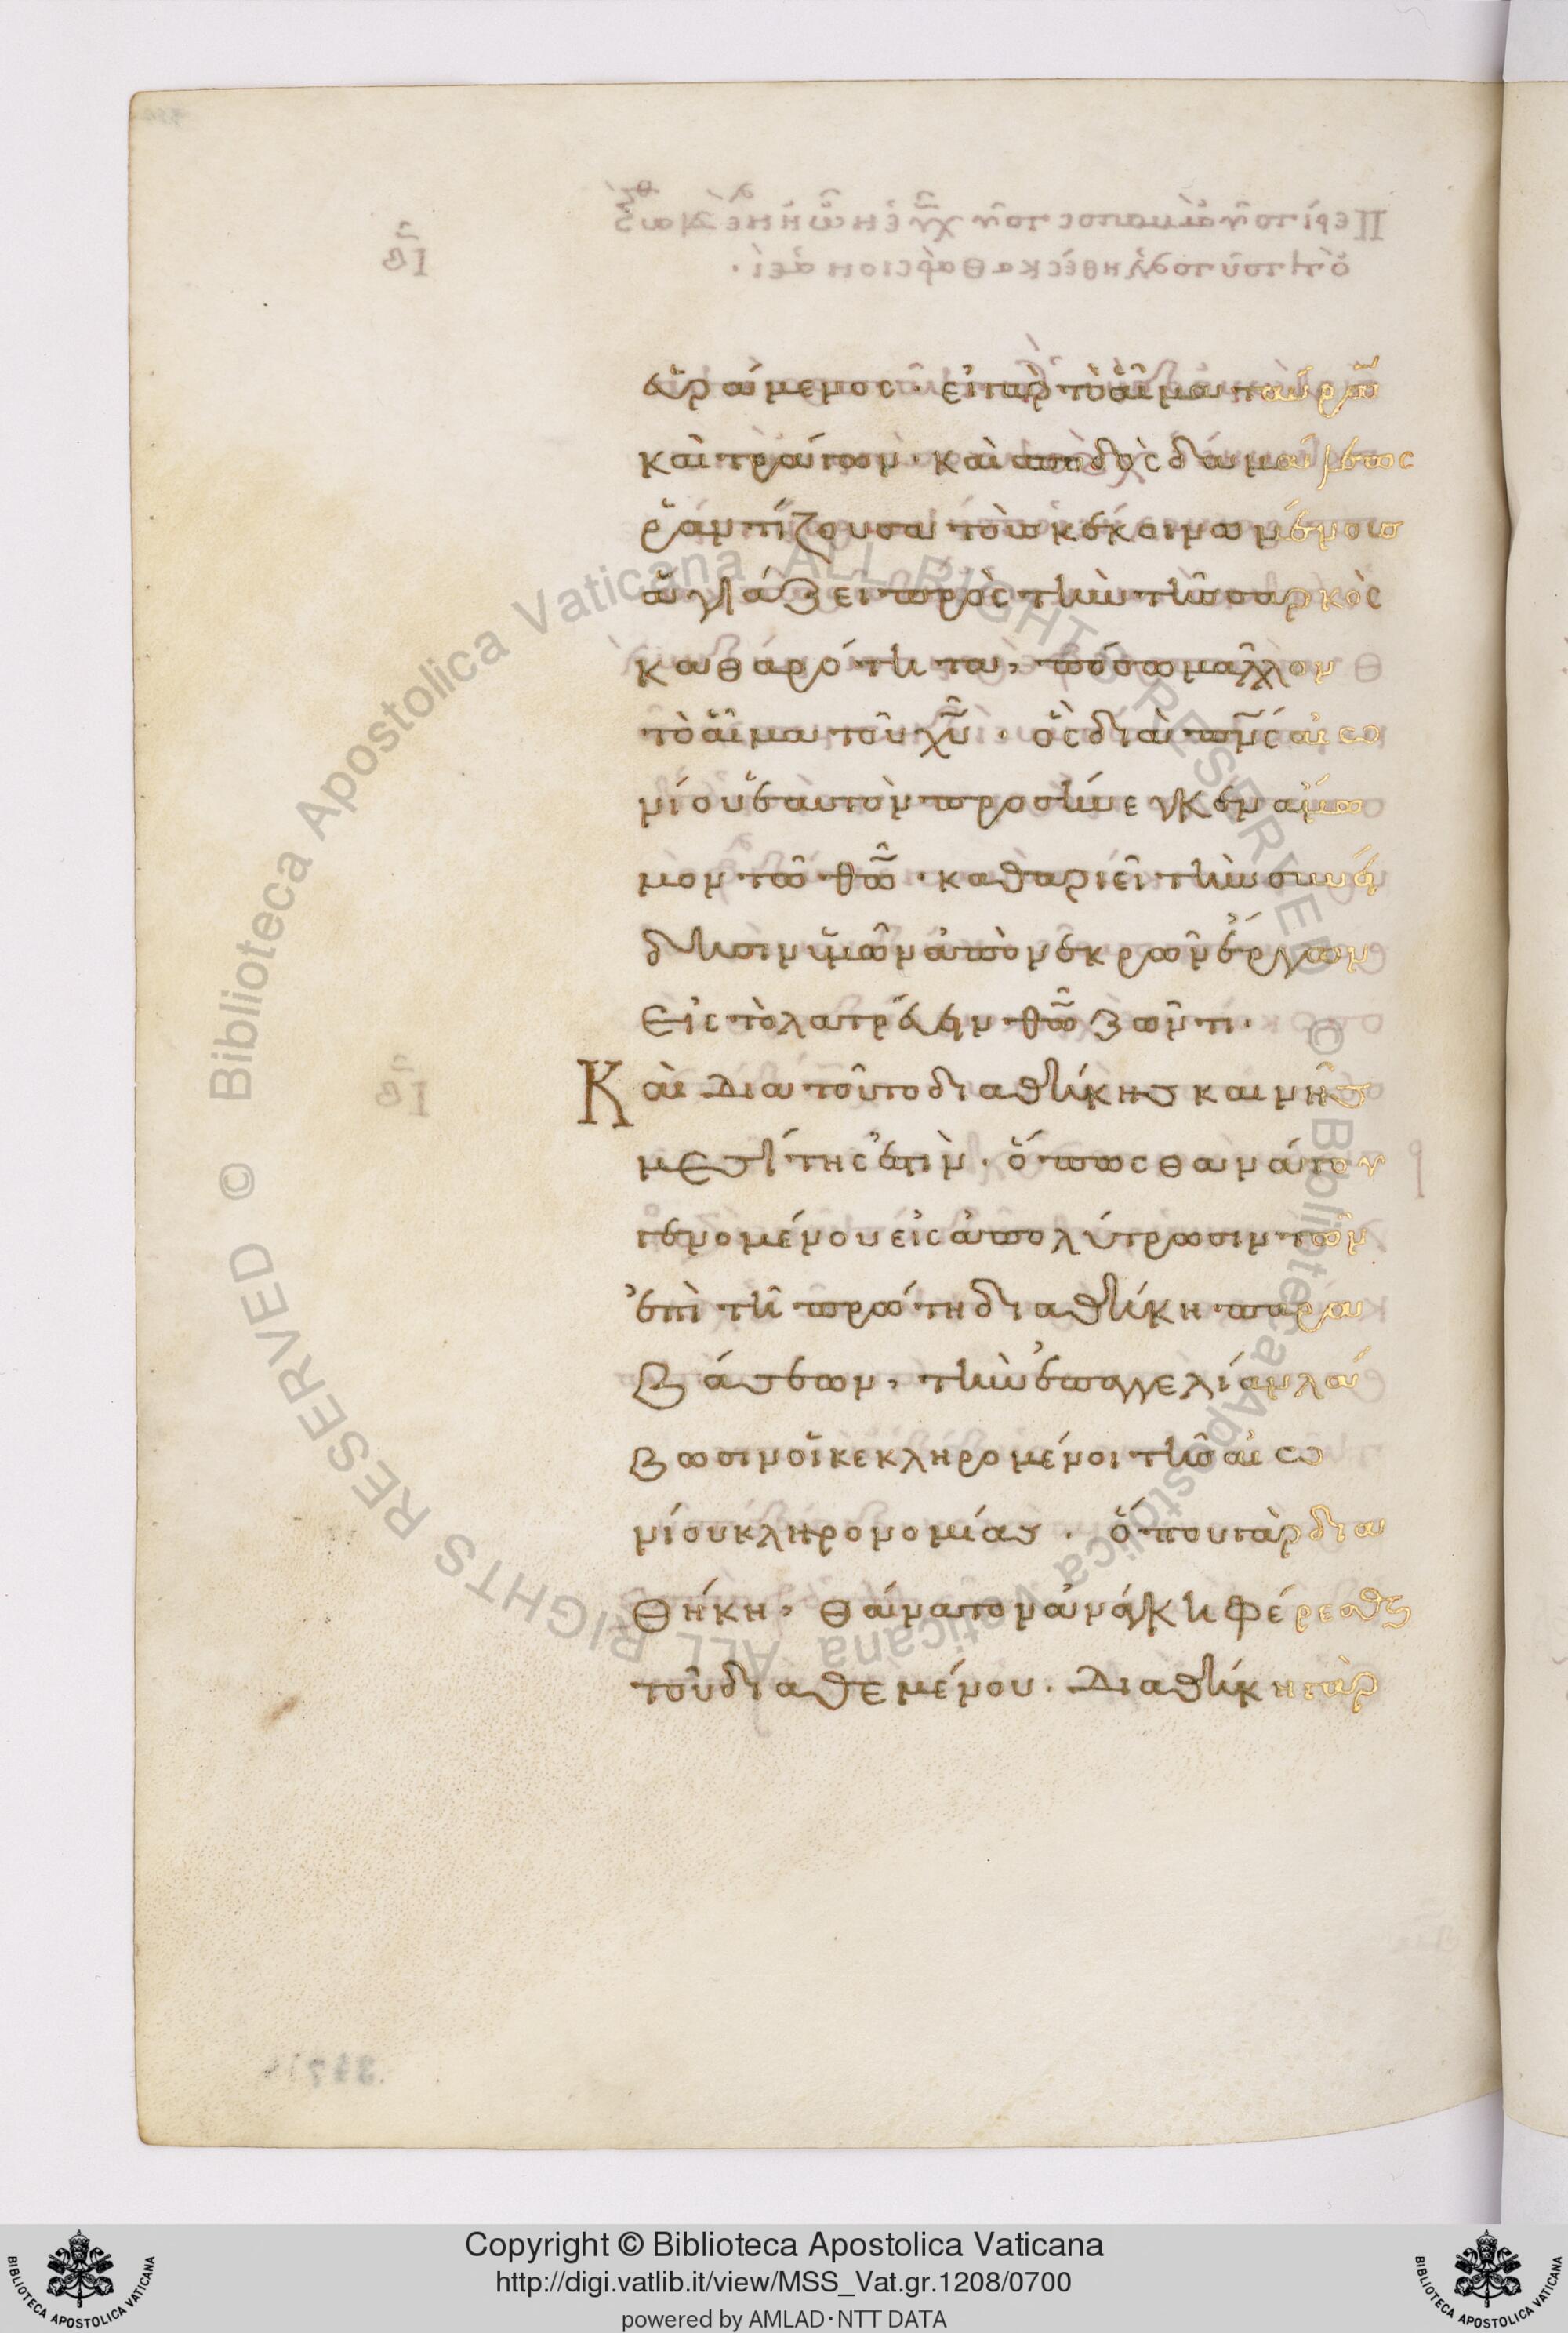 εὑράμενος· εἰ γὰρ τὸ αἷμα ταύρων
καὶ τράγων· καὶ σποδὸς δαμάλεως
ῥαντίζουσα τοὺς κεκοινωμένους
ἁγιάζει πρὸς τὴν τῆς σαρκὸς
καθαρότητα, πόσω μᾶλλον
τὸ αἷμα τοῦ χ̅υ̅· ὃς διὰ π̅ν̅ς̅ αἰω
νίου ἑαυτὸν προσήνεγκεν ἄμω
μον τῶ θ̅ω̅· καθαριεῖ τὴν συνεί
δησιν ὑμῶν ἀπὸ νεκρῶν ἔργων
εἰς τὸ λατρεύειν θ̅ω̅ ζῶντι·
Καὶ δια τοῦτο διαθήκης καινῆς
μεσίτης ἐστὶν· ὅπως θανάτου
γενομένου εἰς ἀπολύτρωσιν τῶν
ἐπὶ τῆ πρώτη διαθήκη παρα
βάσεων, τὴν ἐπαγγελίαν λά
βωσιν οἱ κεκληρομένοι τῆς αἰω
νίου κληρονομίας· ὅπου γὰρ δια
θήκη, θάνατον ἀνάγκη φέρεσθαι
τοῦ διαθεμένου. Διαθήκη γὰρ
Biblioteca Apostolica Vaticana ALL RIGHTS RESERVED ©
Biblioteca Apostolica Vaticana ALL RIGHTS RESERVED ©
Copyright © Biblioteca Apostolica Vaticana
http://digi.vatlib.it/view/MSS_Vat.gr.1208/0700
powered by AMLAD·NTT DATA
BIBLIOTECA APOSTOLICA VATICANA
BIBLIOTECA APOSTOLICA VATICANA